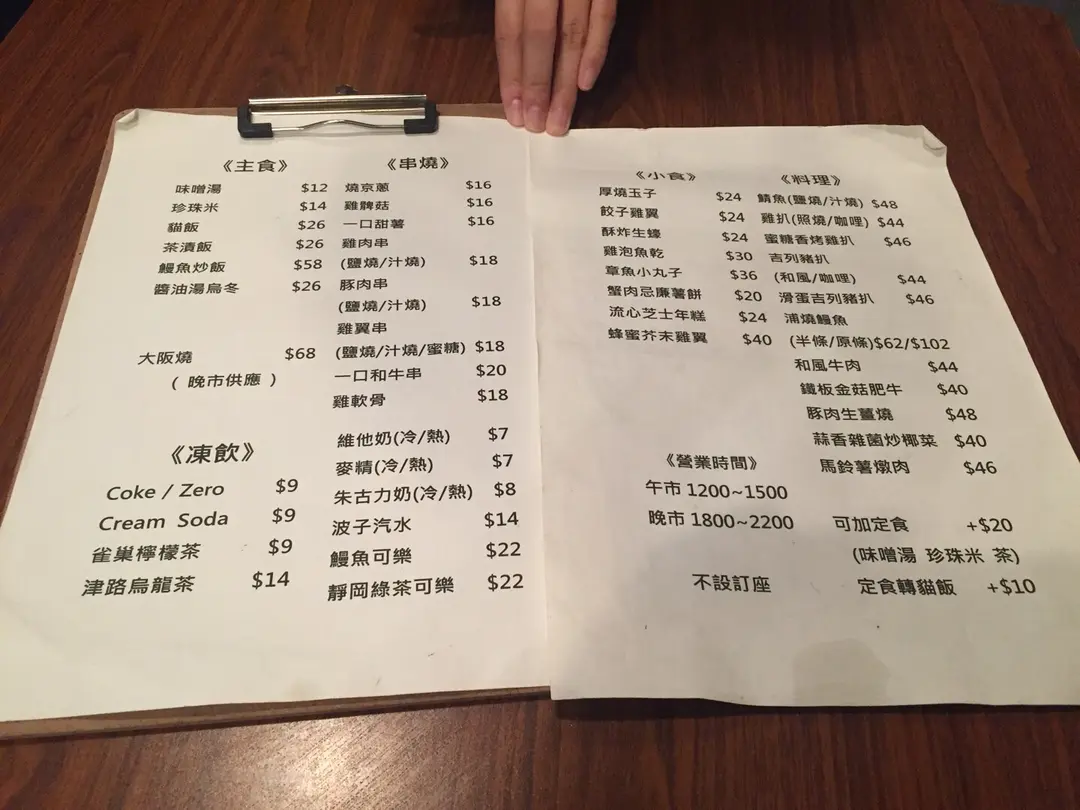 《主食》
味噌湯 $12
珍珠米 $14
貓飯 $26
茶漬飯 $26
鰻魚炒飯 $58
醬油湯烏冬 $26
大阪燒 $68
( 晚市供應 )
《凍飲》
Coke / Zero $9
Cream Soda $9
雀巢檸檬茶 $9
津路烏龍茶 $14
《串燒》
燒京蔥 $16
雞髀菇 $16
一口甜薯 $16
雞肉串
(鹽燒/汁燒) $18
豚肉串
(鹽燒/汁燒) $18
雞翼串
(鹽燒/汁燒/蜜糖) $18
一口和牛串 $20
雞軟骨 $18
維他奶(冷/熱) $7
麥精(冷/熱) $7
朱古力奶(冷/熱) $8
波子汽水 $14
鰻魚可樂 $22
靜岡綠茶可樂 $22
《小食》
厚燒玉子 $24
餃子雞翼 $24
酥炸生蠔 $24
雞泡魚乾 $30
章魚小丸子 $36
蟹肉忌廉薯餅 $20
流心芝士年糕 $24
蜂蜜芥末雞翼 $40
《料理》
鯖魚(鹽燒/汁燒) $48
雞扒(照燒/咖哩) $44
蜜糖香烤雞扒 $46
吉列豬扒
(和風/咖哩) $44
滑蛋吉列豬扒 $46
浦燒鰻魚
(半條/原條)$62/$102
和風牛肉 $44
鐵板金菇肥牛 $40
豚肉生薑燒 $48
蒜香雜菌炒椰菜 $40
馬鈴薯燉肉 $46
《營業時間》
午市 1200~1500
晚市 1800~2200
不設訂座
可加定食 +$20
(味噌湯 珍珠米 茶)
定食轉貓飯 +$10